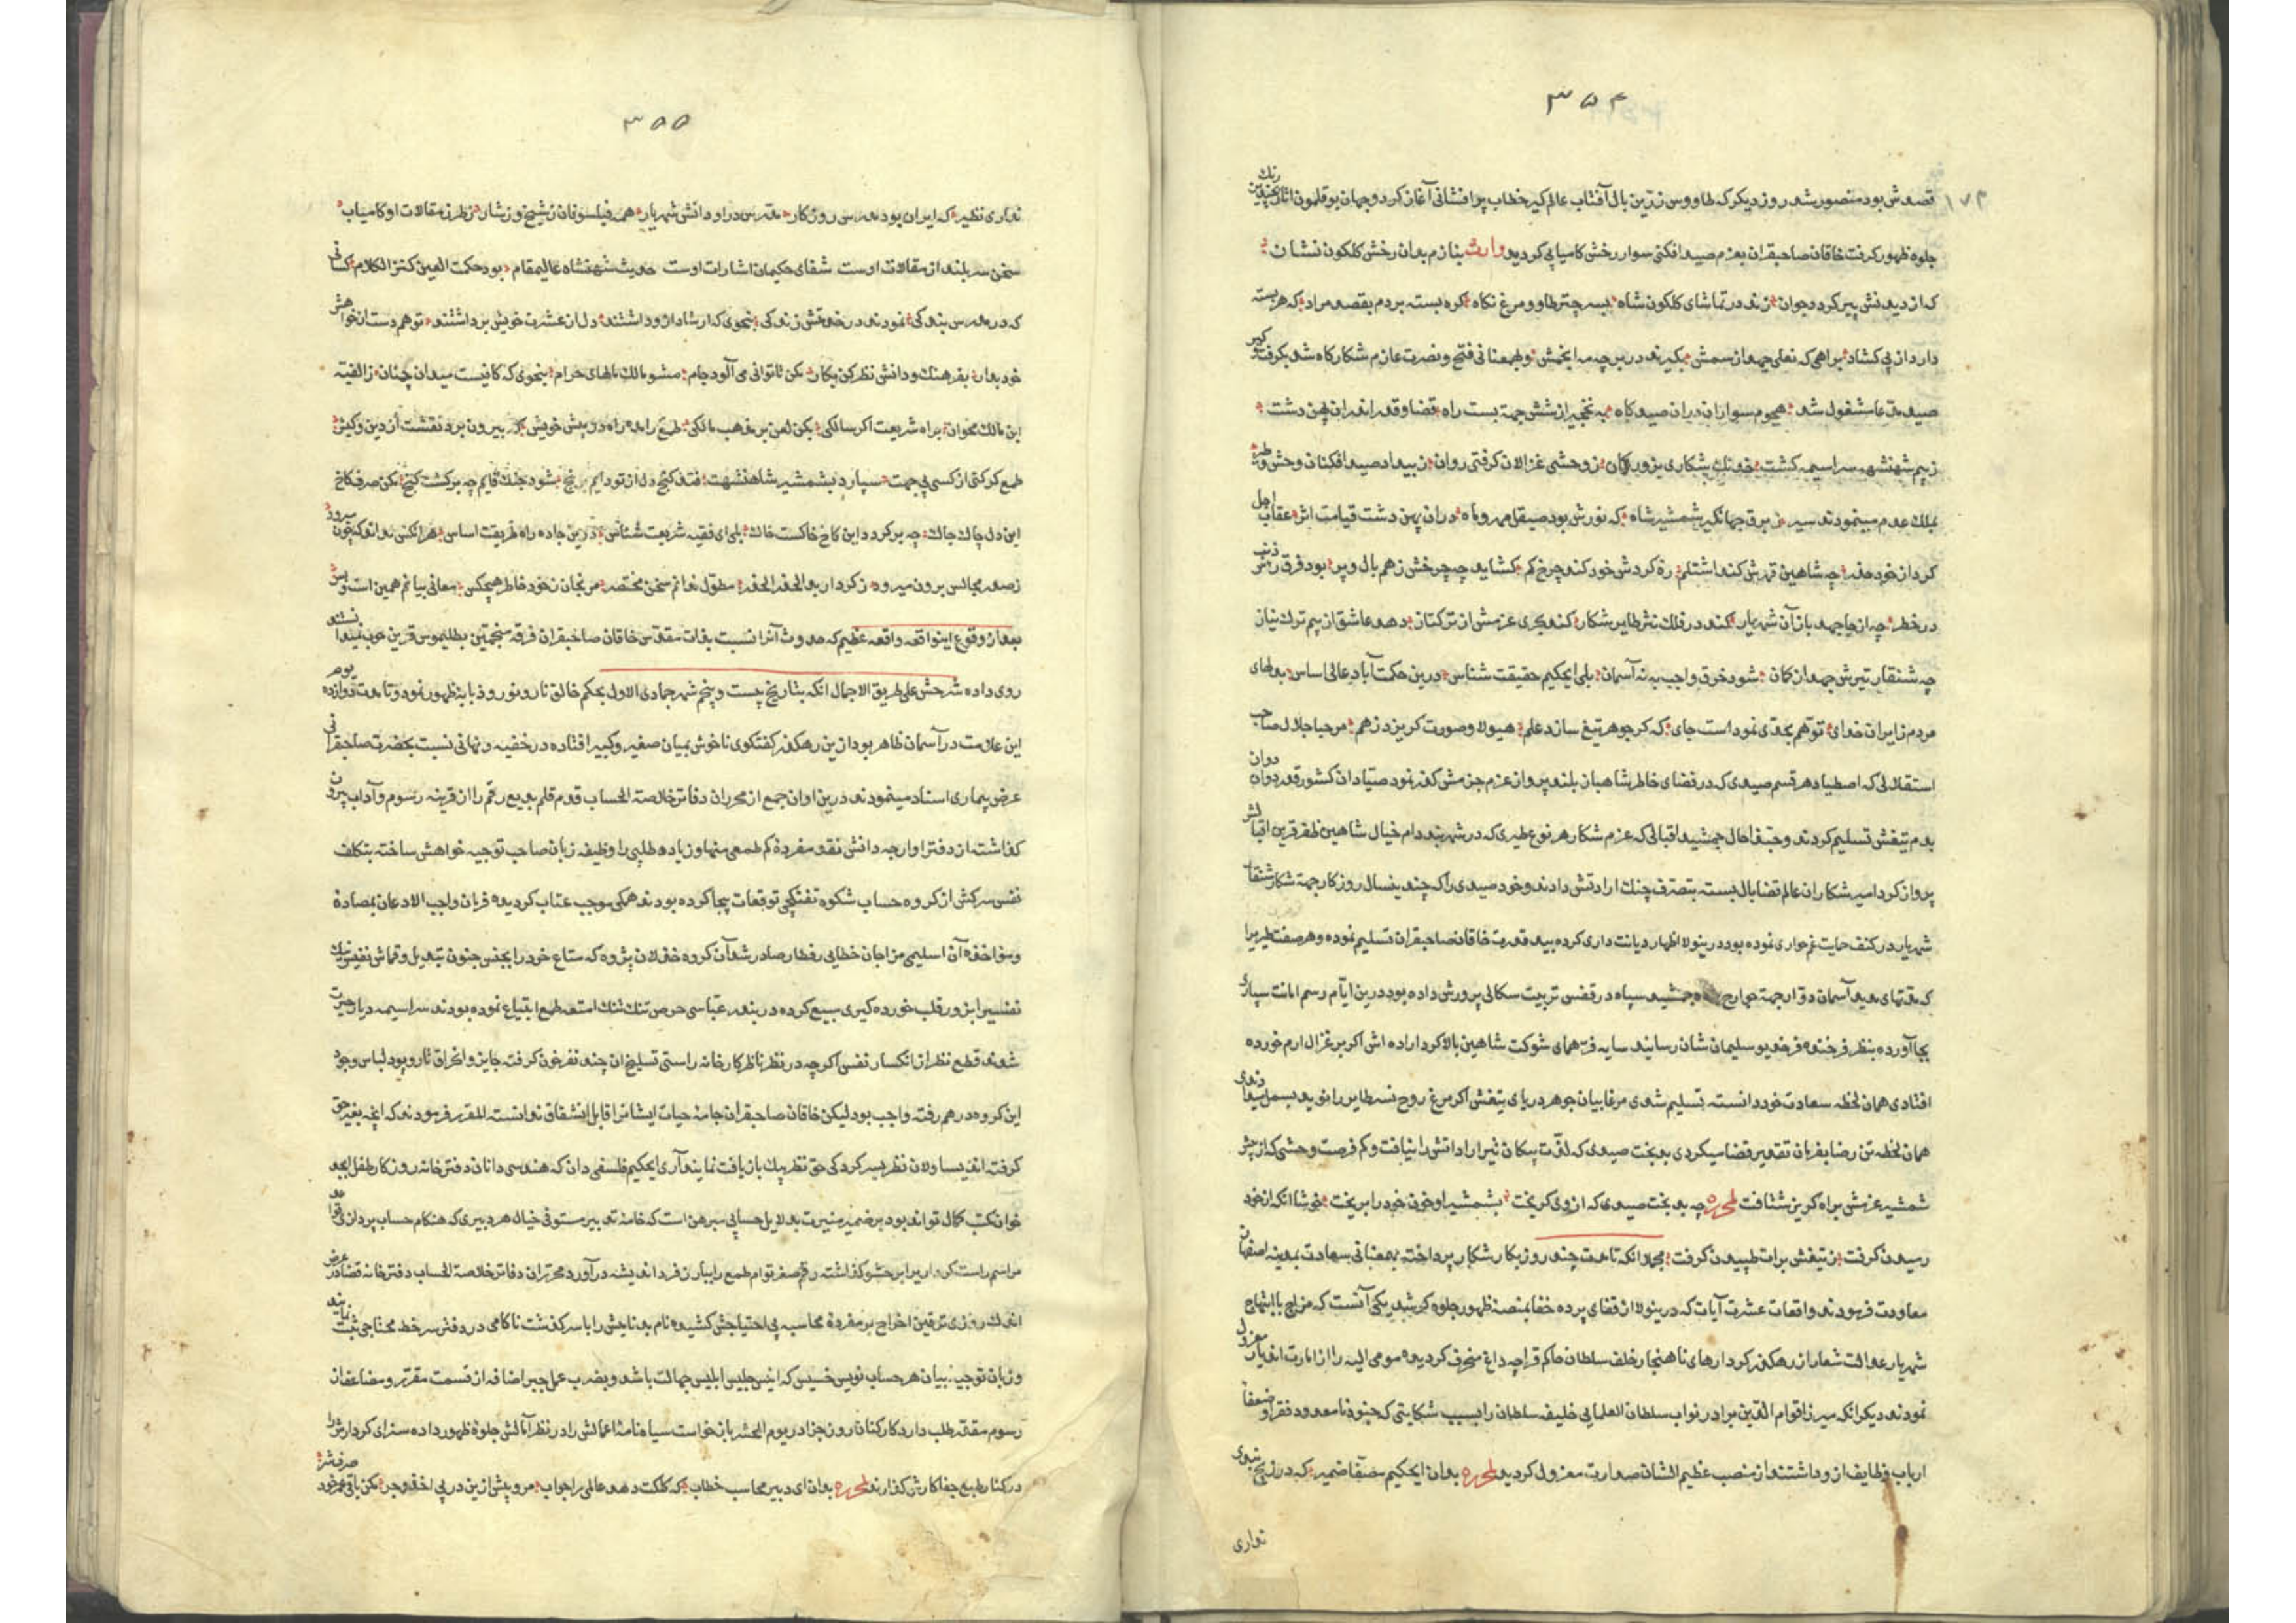 ۳۵۴
۱۷۴
قصدش بود منصور شد روز دیگر که طاووس زرین بال آفتاب عالم گیر خطاب پر افشانی آغاز کرد و جهان بوقلمون رنک
جلوه ظهور گرفت خاقان صاحبقران بعزم صید افکنی سوار رخش کامیابی گردید بنازم بدان رخش کلکون نشان
که از دیدنش پیر گردد جوان زند در تماشای کلکون شاه بسه چتر طاو و مرغ نکاه کره بسته بردم بقصد مراد که هر بسته
دارد از پی کشاد براهی که نعلی جهد از سمش بگیرند در بر چه مه ایخش و بهمعنانی فتح و نصرت عازم شکارکاه شد بگرفت
صید مدعا مشغول شد هجوم سواران دران صیدکاه به نخجیر از شش جهة بست راه قضا و قدر اندران پهن دشت
زبیم شهنشه سراسیمه کشت خدنک شکاری بزور کمان ز وحشی غزالان گرفتی روان زبیداد صید افکنان وحش و طیر
بملک عدم مینمودند سیر ز برق جهانگیر شمشیر شاه که نورش بود صیقل مهر و ماه دران پهن دشت قیامت اثر عقاب اجل
کرد از خود حذر چه شاهین قهرش کند اشتلم ره کردش خود کند چرخ کم کشاید چه چرخش زهم بال و پر بود فرق
در خطر چه از جا جهد باز آن شهریار کند در فلک نثر طایر شکار کند بحری عزمش از ترکتاز دهد عاشق از بیم ترک نیاز
چه شنقار تیرش جهد از کمان شود خرق واجب به نه آسمان بلی ایحکیم حقیقت شناس درین حکمت آباد عالی اساس بدلهای
مردم ز ایران خدای توهم بحدی نمود است جای که کر جوهر تیغ سازد علم هیولا و صورت کریزد زهم مرحبا جلال صاحب
استقلالی که اصطیاد هر قسم صیدی که در فضای خاطر شاهباز بلند پرواز عزم جزمش کذر نمود صیادان کشور قدر دوان دوان
بدم تیغش تسلیم کردند و حبذا حال جمشید اقبالی که عزم شکار هر نوع طیری که در شهر بند دام خیال شاهین ظفر قرین اقبالش
پرواز کرد امیر شکاران عالم قضا بال بسته بتصرف چنک ارادتش دادند و خود صیدی را که چندینسال روزکار جهة شکار شنقار
شهریار در کنف حمایت غمخواری نموده بود درینولا اظهار دیانت داری کرده بید قدرت خاقان صاحبقران تسلیم نموده و هر صفت طیر را
که مدتهای مدید آسمان دوار جهة جوارح جمشید سپاه در قفس تربیت سکالی پرورش داده بود درین ایام رسم امانت سپاری
بجا آورده بنظر فرخنده فرخدیو سلیمان شان رسانید سایه فر همای شوکت شاهین بالا کرد اراده اش اکر بر غزال ارم خورده
افتادی همان لحظه سعادت خود دانسته تسلیم شدی مرغابیان جوهر دریای تیغش اکر مرغ روح نسطایر را نوید بسمل
همان لحظه تن رضا بفرمان تقدیر قضا میکردی بدبخت صیدی که لذت پیکان تیر ارادتش را نیافت و کم فرصت وحشی که از پیش
شمشیر عزمش براه کریز شتافت لمحرره چه بدبخت صیدی که از وی کریخت بشمشیر او خون خود را بریخت خوشا انکه از خود
رمیدن گرفت ز تیغش برات طپیدن گرفت مجملا انکه تا مدت چند روز بکار شکار پرداخته بهمعنانی سعادت بمدینه اصفهان
معاودت فرمودند واقعات عشرت آیات که درینولا از قفای پرده خفا بمنصه ظهور جلوه کر شد یکی آنست که مزاج با ابتهاج
شهریار عدالت شعار از رهکذر کردارهای ناهنجار خلف سلطان حاکم قراچه داغ منحرف کردیده مومی الیه را از امارت اندیار معزول
نمودند دیکر انکه میرزا قوام الدین برادر نواب سلطان العلمایی خلیفه سلطان را بسبب شکایتی که جنود نامعدود فقرا و ضعفا
ارباب وظایف از و داشتند از منصب عظیم الشان صدارت معزول کردید لمحرره بدان ایحکیم مصفا ضمیر که در زیج نبوی
نداری
۳۵۵
نداری نظیر که ایران بود مدرس روزکار مدرس در او دانش شهریار همه فیلسوفان ز شیخ و ز شاب ز طرز مقالات او کامیاب
سخن سربلند از مقالات اوست شفای حکیمان اشارات اوست حدیث شهنشاه عالیمقام بود حکمت العین کنز الکلام کسانی
که در مدرس بندکی نمودند در خدمتش زندکی بنحوی که ارشاد ازو داشتند دل از عشرت خویش برداشتند تو هم دست از خواهش
خود بدار بفرهنک و دانش نظر کن بکار مکن تا توانی می آلود جام مشو مالک مالهای حرام بنحوی که کافیست میدان چنان ز الفیه
ابن مالک بخوان براه شریعت اکر سالکی بکن لعن بر مذهب مالکی طمع را مده راه در پیش خویش که بیرون برد نقشت از دین و کیش
طمع کر کنی از کسی بی جهت سپارد بشمشیر شاهنشهت فتد کنج دل از تو دایم برنج شود جنک قایم چه برکشت کنج مکن صرف کاخ
این دل چاک چاک چه برکردد این کاخ خاکست خاک بلی ای فقیه شریعت شناس درین جاده راه طریقت اساس هر انکس نداند که چون میرود
ز صدر مجالس برون میرود ز کردار بد الحذر الحذر مطول ندانم سخن مختصر مرنجان ز خود خاطر هیچکس معانی بیانم همین است و بس
بعد از وقوع اینواقعه واقعه عظیم که حدوث آنرا نسبت بذات مقدس خاقان صاحبقران فرقه منجمین بطلیموس قرین خوب نمیدانستند
روی داده شرحش علی طریق الاجمال انکه بتاریخ بیست و پنجم شهر جمادی الاول بحکم خالق نار و نور دو ذنابه ظهور نمود و تا مدت دوازده یوم
این علامت در آسمان ظاهر بود ازین رهکذر کفتکوی ناخوش بمیان صغیر و کبیر افتاده در خفیه و نهانی نسبت بحضرت صاحبقرانی
عرض بیماری اسناد مینمودند درین اوان جمع از محرران دفاتر خلاصة الحساب قدم قلم بدیع رقم را از قرینه رسوم و آداب بیرون
کذاشته از دفتر اوارجه دانش نقد مفرده کم طمعی منها و زیاده طلبی را وظیفه زبان صاحب توجیه خواهش ساخته بتکلف
نفس سرکش از کروه حساب شکوه تفنکچی توقعات بیجا کرده بودند همکی موجب عتاب کردیده فرمان واجب الاذعان بمصادره
و مواخذه آن اسلیمی مزاجان خطایی رفتار صادر شد آن کروه خذلان پژوه که متاع خود را بجنس جنون تبدیل و قماش نفیس نیک
نفسیرا بزور قلب خورده کیری بیع کرده در بند عباسی حرص تنک تنک امتعه طمع ابتیاع نموده بودند سراسیمه دیار حیرت
شدند قطع نظر از انکسار نفس اکرچه در نظر ناظر کارخانه راستی تسلیخ ان چند نفر خون کرفته جایز و انخراق تار و پود لباس وجود
این کروه درهم رفته واجب بود لیکن خاقان صاحبقران جامه حیات ایشانرا قابل انشقاق ندانسته المقرر فرمودند که انچه بغیر حق
کرفته اند یساولان نظر بسر کردکی حق نظر بیک بازیافت نمایند آری ایحکیم فلسفی دان که هندسی دانان دفترخانه روزکار طفل ابجد
خوان کتب کمال تو اند بود بر ضمیر منیرت بدلایل حسابی مبرهن است که خامه تدبیر مستوفی خیال هر دبیری که هنکام حساب پردازی قواعد
مراسم راست کرداریرا بر حشو کذاشته رقم صفر توام طمع را ببارز فرد اندیشه در آورد محرران دفاتر خلاصة الحساب دفترخانه قضا در عرض
اندک روزی ترقین اخراج بر مفرده محاسبه بی احتیاجش کشیده نام بد نامیش را با سرکذشت ناکامی در دفتر سر خط محتاجی ثبت نمایند
و زبان توجیه بیان هر حساب نویس خسیس که انیس جلیس ابلیس جهالت باشد و بضرب عمل جبر اضافه از قسمت مقرر و مضاعف از
رسوم مقدر طلب دارد کارکنان روز جزا در یوم الحشر بازخواست سیاه نامه اعمالش را در نظر آمالش جلوه ظهور داده سزای کردارش را
در کنار طبع جفاکارش کذارند لمحرره بدان ای دبیر محاسب خطاب که کلکت دهد عالمی را جواب مرو بیش ازین در پی اخذ و جر مکن باقی عمر خود صرف شر